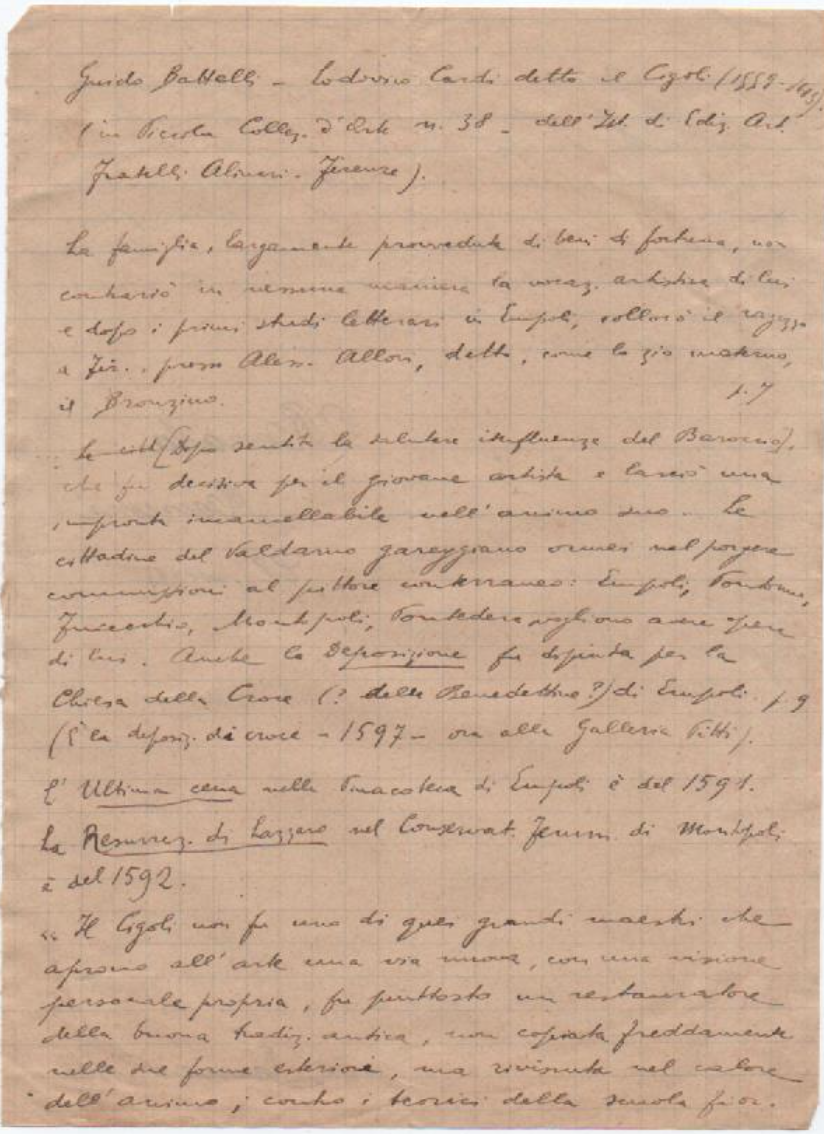 Guido Battelli - Lodovico Cardi detto il Cigoli (1559-1613).
(in Piccola Collez. d'Arte n. 38 - dell'Ist. di Ediz. Art.
Fratelli Alinari - Firenze).
La famiglia, largamente provveduta di beni di fortuna, non
contrariò in nessuna maniera la vocaz. artistica di lui
e dopo i primi studi letterari in Empoli, collocò il ragazzo
a Fir., presso Aless. Allori, detto, come lo zio materno,
il Bronzino. p. 7
(Dopo sentita la salutare influenza del Baroccio),
che fu decisiva per il giovane artista e lasciò una
impronta incancellabile nell'animo suo. Le
cittadine del Valdarno gareggiano ormai nel porgere
commissioni al pittore conterraneo: Empoli, Pontormo,
Fucecchio, Montopoli, Pontedera vogliono avere opere
di lui. Anche la Deposizione fu dipinta per la
Chiesa della Croce (? delle Benedettine?) di Empoli. p. 9
(È la deposiz. di croce - 1597 - ora alla Galleria Pitti).
L'Ultima cena nella Pinacoteca di Empoli è del 1591.
La Resurrez. di Lazzaro nel Conservat. Femm. di Montopoli
è del 1592.
"Il Cigoli non fu uno di quei grandi maestri che
aprono all'arte una via nuova, con una visione
personale propria, fu piuttosto un restauratore
della buona tradiz. antica, non copiata freddamente
nelle sue forme esteriori, ma rivissuta nel calore
dell'animo; contro i teorici della scuola fior.